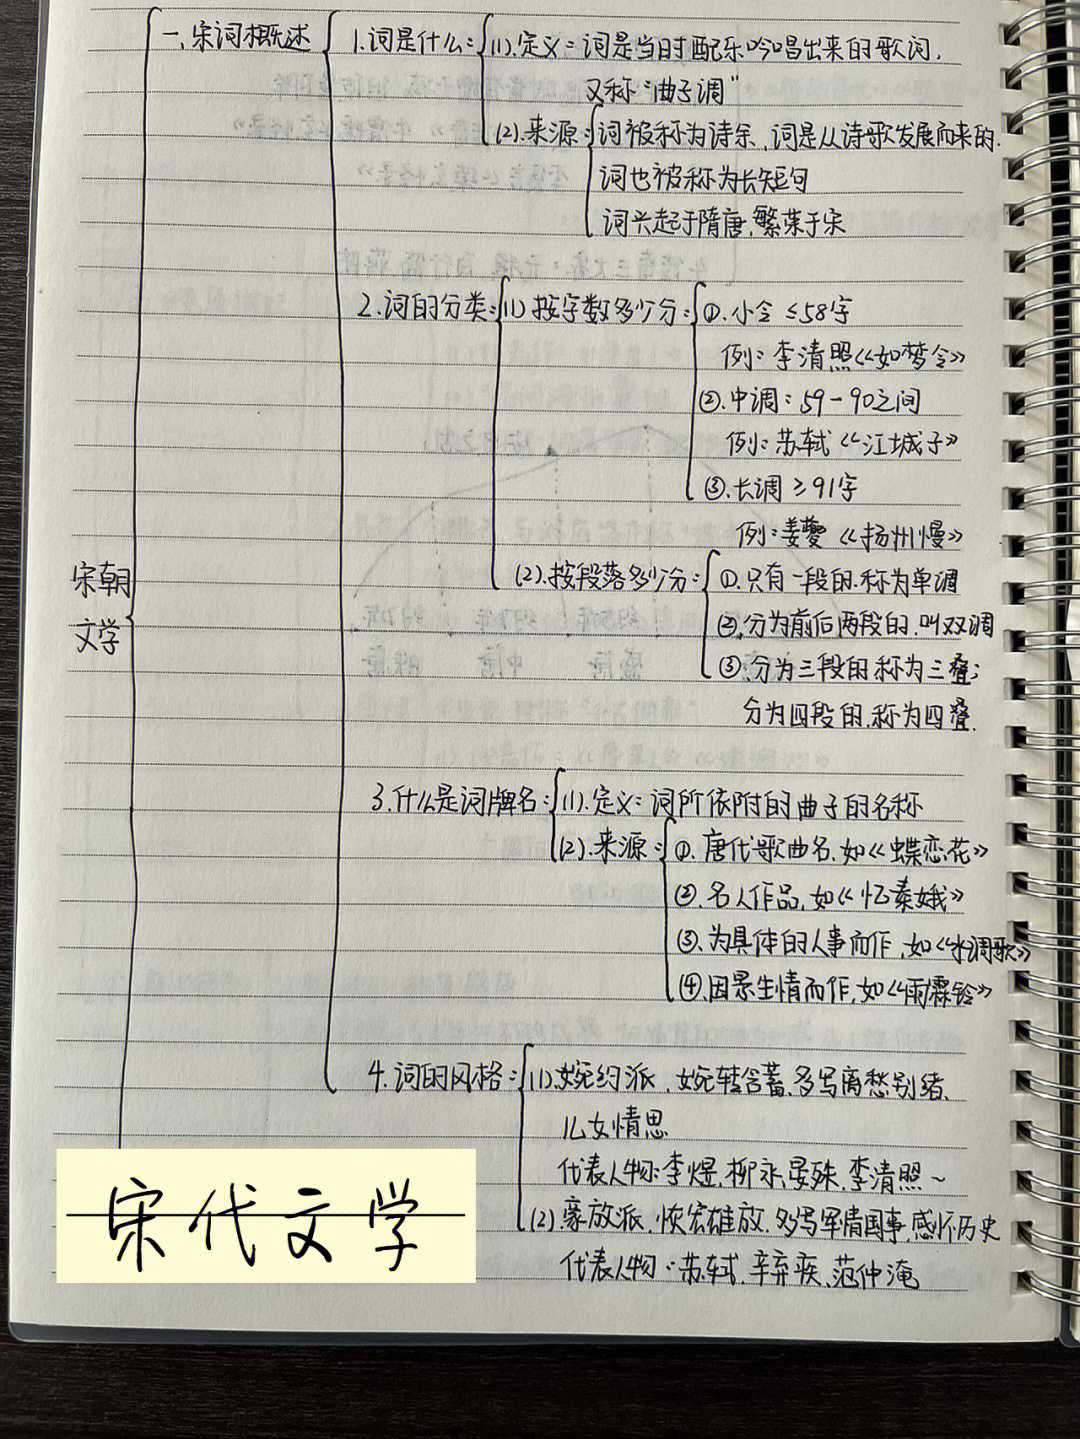 一、宋词概述
1.词是什么:
(1).定义:词是当时配乐吟唱出来的歌词,
又称"曲子调"
(2).来源:词被称为诗余,词是从诗歌发展而来的.
词也被称为长短句
词兴起于隋唐,繁荣于宋
2.词的分类:
(1)按字数多少分:
①.小令≤58字
例:李清照《如梦令》
②.中调:59-90之间
例:苏轼《江城子》
③.长调≥91字
例:姜夔《扬州慢》
(2).按段落多少分:
①.只有一段的.称为单调
②.分为前后两段的.叫双调
③.分为三段的称为三叠;
分为四段的,称为四叠.
宋朝
文学
3.什么是词牌名:
(1).定义:词所依附的曲子的名称
(2).来源:
①.唐代歌曲名,如《蝶恋花》
②.名人作品,如《忆秦娥》
③.为具体的人事而作,如《水调歌》
④.因景生情而作,如《雨霖铃》
4.词的风格:
(1).婉约派,婉转含蓄,多写离愁别绪、
儿女情思
代表人物:李煜,柳永,晏殊,李清照~
(2).豪放派,恢宏雄放,多写军情国事,感怀历史
代表人物:苏轼,辛弃疾,范仲淹
宋代文学